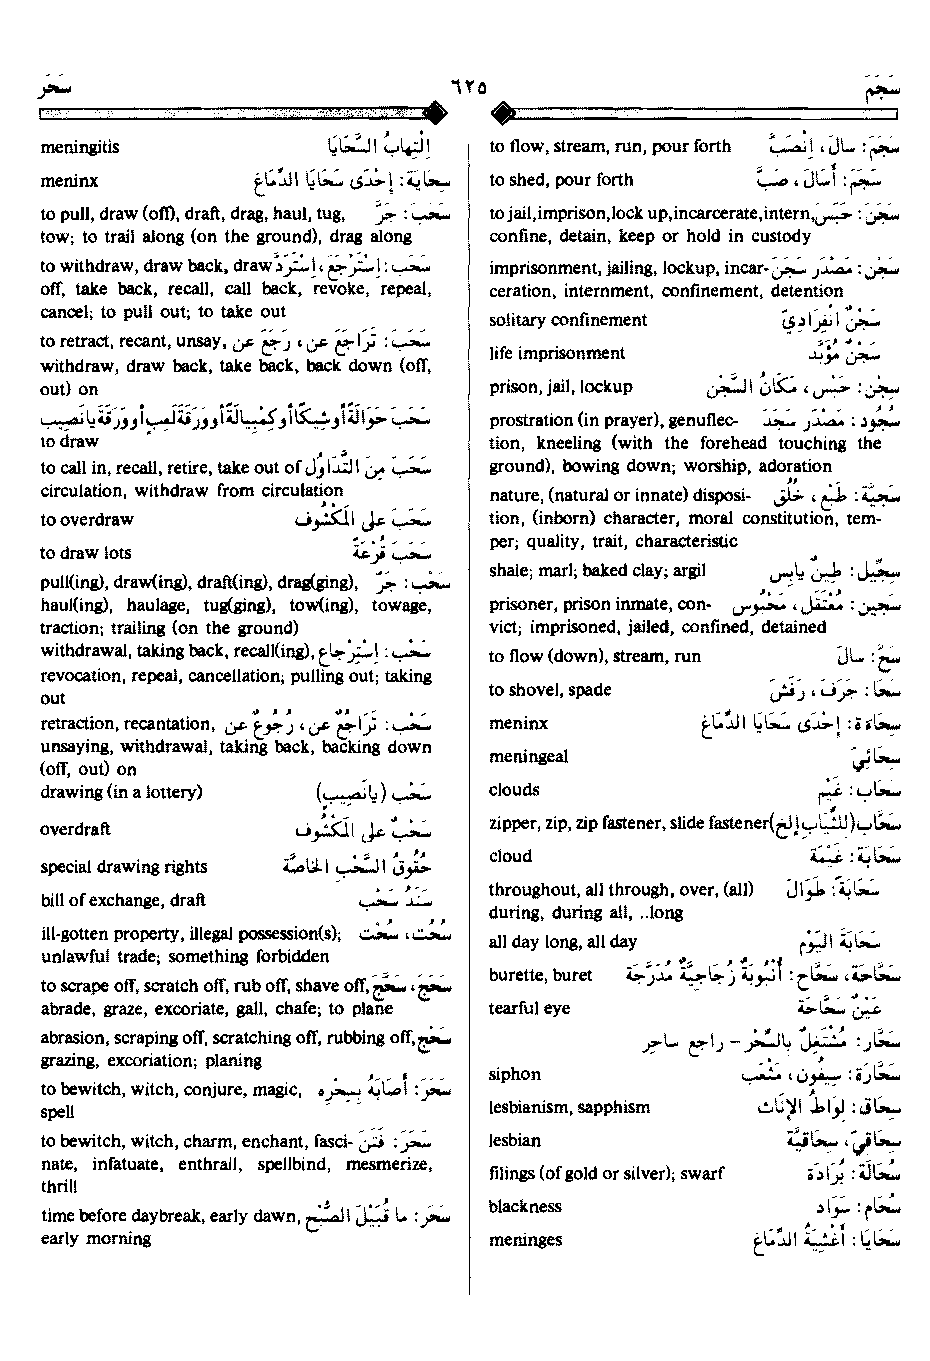 سَجَمَ ٦٢٥ سَحَر
سَجَمَ: سَالَ، اِنْصَبَّ to flow, stream, run, pour forth
سَجَمَ: أَسَالَ، صَبَّ to shed, pour forth
سَجَنَ: حَبَسَ to jail, imprison, lock up, incarcerate, intern,
confine, detain, keep or hold in custody
سَجْن: مَصْدَر سَجَنَ imprisonment, jailing, lockup, incar-
ceration, internment, confinement, detention
سَجْنٌ اِنْفِرَادِيّ solitary confinement
سَجْنٌ مُؤَبَّد life imprisonment
سِجْن: حَبْس، مَكَانُ السَّجْن prison, jail, lockup
سُجُود: مَصْدَر سَجَدَ prostration (in prayer), genuflec-
tion, kneeling (with the forehead touching the
ground), bowing down; worship, adoration
سَجِيَّة: طَبْع، خُلُق nature, (natural or innate) disposi-
tion, (inborn) character, moral constitution, tem-
per; quality, trait, characteristic
سِجِّيل: طِينٌ يَابِس shale; marl; baked clay; argil
سَجِين: مُعْتَقَل، مَحْبُوس prisoner, prison inmate, con-
vict; imprisoned, jailed, confined, detained
سَحَّ: سَالَ to flow (down), stream, run
سَحَا: جَرَفَ، رَفَشَ to shovel, spade
سِحَاءَة: إِحْدَى سَحَايَا الدِّمَاغ meninx
سِحَائِيّ meningeal
سَحَاب: غَيْم clouds
سَحَّاب (لِلثِّيَابِ إلخ) zipper, zip, zip fastener, slide fastener
سَحَابَة: غَيْمَة cloud
سَحَابَةَ: طَوَالَ throughout, all through, over, (all)
during, during all, ..long
سَحَابَةَ اليَوْم all day long, all day
سَحَّاحَة، سَحَّاح: أُنْبُوبَةٌ زُجَاجِيَّةٌ مُدَرَّجَة burette, buret
عَيْنٌ سَحَّاحَة tearful eye
سَحَّار: مُشْتَغِلٌ بِالسِّحْر - راجع ساحِر
سَحَّارَة: سِيفُون، مَثْعَب siphon
سِحَاق: لِوَاطُ الإِنَاث lesbianism, sapphism
سِحَاقِيّ، سِحَاقِيَّة lesbian
سُحَالَة: بُرَادَة filings (of gold or silver); swarf
سُحَام: سَوَاد blackness
سَحَايَا: أَغْشِيَةُ الدِّمَاغ meninges
اِلْتِهَابُ السَّحَايَا meningitis
سِحَايَة: إِحْدَى سَحَايَا الدِّمَاغ meninx
سَحَبَ: جَرَّ to pull, draw (off), draft, drag, haul, tug,
tow; to trail along (on the ground), drag along
سَحَبَ: اِسْتَرْجَعَ، اِسْتَرَدَّ to withdraw, draw back, draw
off, take back, recall, call back, revoke, repeal,
cancel; to pull out; to take out
سَحَبَ: تَرَاجَعَ عَن، رَجَعَ عَن to retract, recant, unsay,
withdraw, draw back, take back, back down (off,
out) on
سَحَبَ حَوَالَةً أو شِيكًا أو كِمْبِيَالَةً أو وَرَقَةَ لَعِبٍ أو وَرَقَةَ يَانَصِيب
to draw
سَحَبَ مِنَ التَّدَاوُل to call in, recall, retire, take out of
circulation, withdraw from circulation
سَحَبَ على المَكْشُوف to overdraw
سَحَبَ قُرْعَةً to draw lots
سَحْب: جَرّ pull(ing), draw(ing), draft(ing), drag(ging),
haul(ing), haulage, tug(ging), tow(ing), towage,
traction; trailing (on the ground)
سَحْب: اِسْتِرْجَاع withdrawal, taking back, recall(ing),
revocation, repeal, cancellation; pulling out; taking
out
سَحْب: تَرَاجُعٌ عَن، رُجُوعٌ عَن retraction, recantation,
unsaying, withdrawal, taking back, backing down
(off, out) on
سَحْب (يَانَصِيب) drawing (in a lottery)
سَحْبٌ على المَكْشُوف overdraft
حُقُوقُ السَّحْبِ الخَاصَّة special drawing rights
سَنَدُ سَحْب bill of exchange, draft
سُحْت، سُحُت ill-gotten property, illegal possession(s);
unlawful trade; something forbidden
سَحَجَ، سَحَّجَ to scrape off, scratch off, rub off, shave off,
abrade, graze, excoriate, gall, chafe; to plane
سَحْج abrasion, scraping off, scratching off, rubbing off,
grazing, excoriation; planing
سَحَرَ: أَصَابَهُ بِسِحْرِه to bewitch, witch, conjure, magic,
spell
سَحَرَ: فَتَنَ to bewitch, witch, charm, enchant, fasci-
nate, infatuate, enthrall, spellbind, mesmerize,
thrill
سَحَر: ما قُبَيْلَ الصُّبْح time before daybreak, early dawn,
early morning